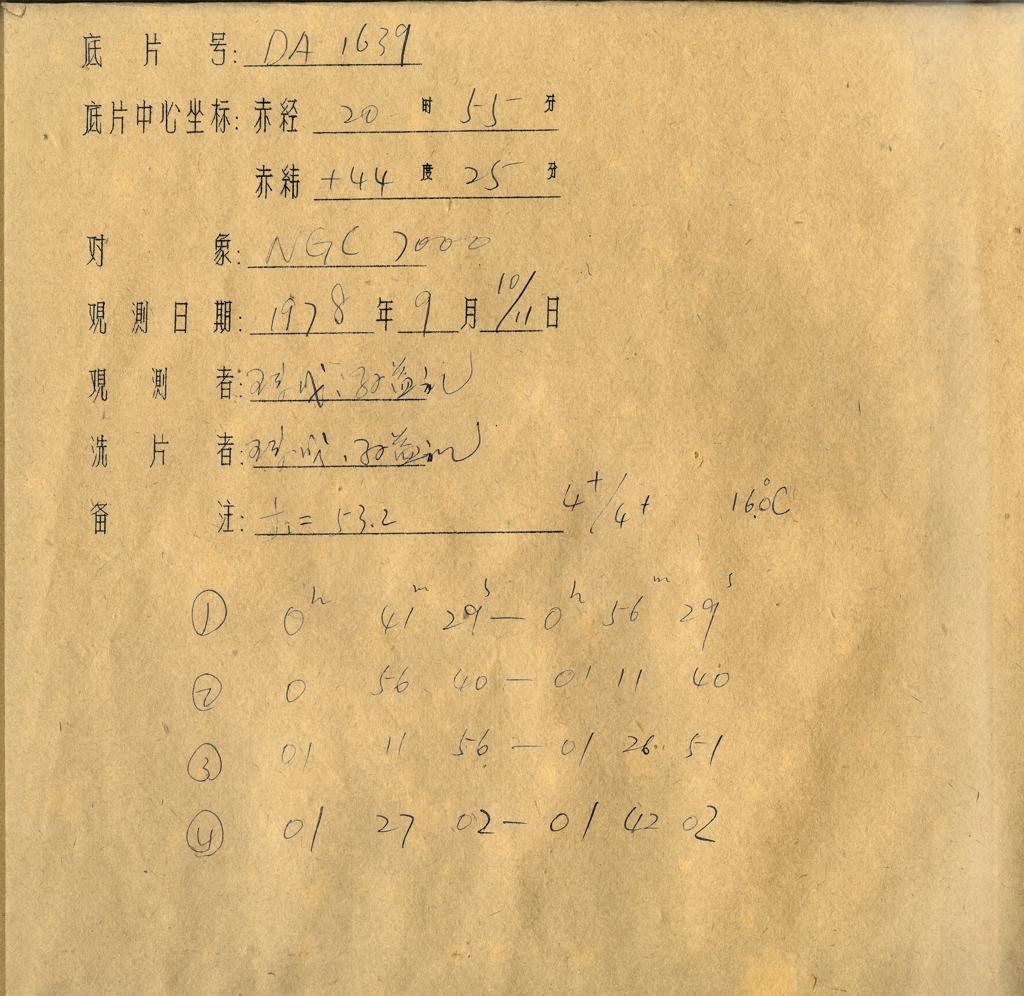 底片号: DA 1639
底片中心坐标: 赤经 20 时 55 分
赤纬 +44 度 25 分
对象: NGC 7000
观测日期: 1978 年 9 月 10/11 日
观测者:
洗片者:
备注: = 53.2 4+/4+ 16.0°C
① 0h 41m 29s — 0h 56m 29s
② 0 56 40 — 01 11 40
③ 01 11 56 — 01 26 51
④ 01 27 02 — 01 42 02